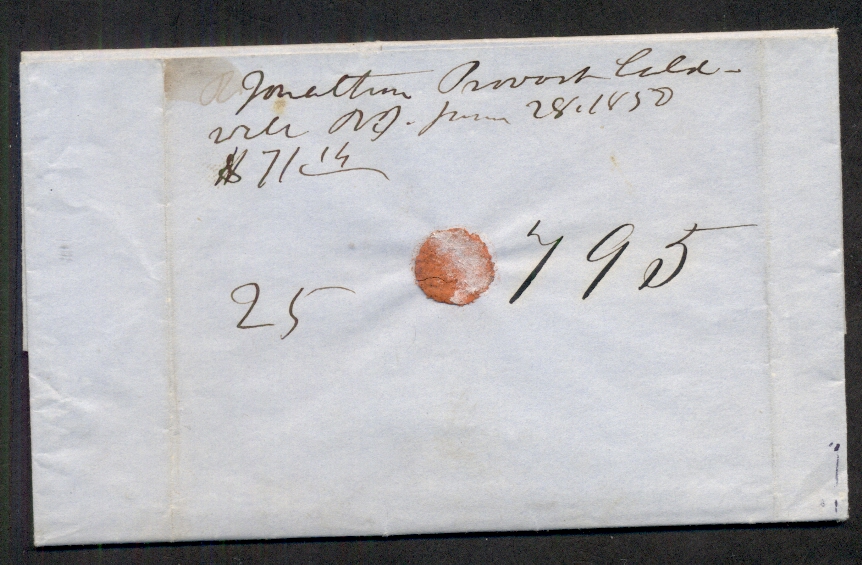 Jonathan Provost Cald-
well NJ. June 28. 1850
$71.14
795
25